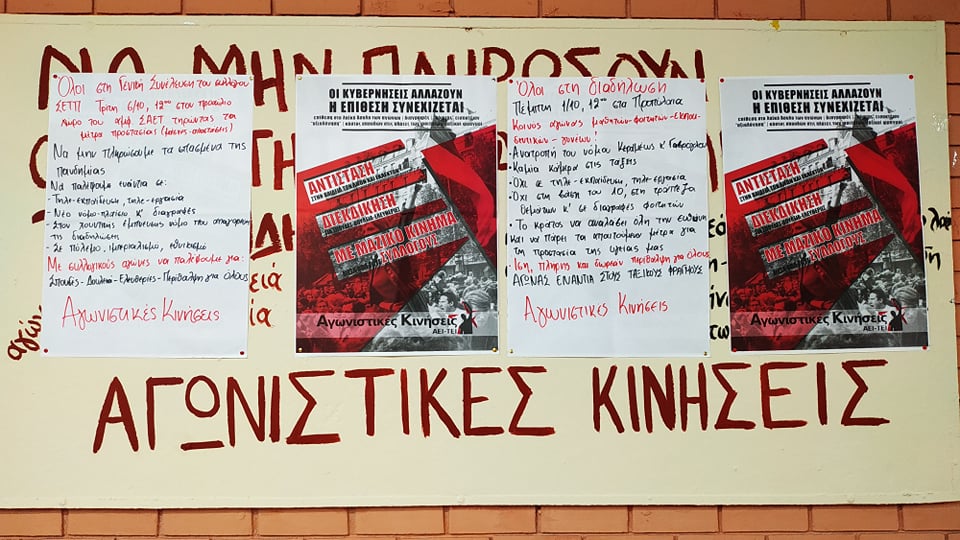 ΝΑ ΜΗΝ ΠΛΗΡΩΣΟΥΝ
Όλοι στη Γενική Συνέλευση του συλλόγου
ΣΕΤΠ Τρίτη 6/10, 12:00 στον προαύλιο
χώρο του αμφ. ΣΑΕΤ τηρώντας τα
μέτρα προστασίας (μάσκες-αποστάσεις)
Να μην πληρώσουμε τα σπασμένα της
πανδημίας
Να παλέψουμε ενάντια σε:
-Τηλε-εκπαίδευση, τηλε-εργασία
-Νέο νόμο-πλαίσιο κ' διαγραφές
-Στον χουντικής έμπνευσης νόμο που απαγορεύει
τις διαδηλώσεις
-Σε πόλεμο, ιμπεριαλισμό, εθνικισμό
Με συλλογικούς αγώνες να παλέψουμε για:
Σπουδές-Δουλειά-Ελευθερίες-Περίθαλψη για όλους
Αγωνιστικές Κινήσεις
ΟΙ ΚΥΒΕΡΝΗΣΕΙΣ ΑΛΛΑΖΟΥΝ
Η ΕΠΙΘΕΣΗ ΣΥΝΕΧΙΖΕΤΑΙ
ΑΝΤΙΣΤΑΣΗ
ΔΙΕΚΔΙΚΗΣΗ
ΜΕ ΜΑΖΙΚΟ ΚΙΝΗΜΑ
ΣΥΛΛΟΓΟΥΣ
Αγωνιστικές Κινήσεις
ΑΕΙ-ΤΕΙ
Όλοι στη διαδήλωση
Πέμπτη 1/10, 12:00 στα Προπύλαια
Κοινός αγώνας μαθητών-φοιτητών-εκπαι-
δευτικών-γονέων!
·Ανατροπή του νόμου Κεραμέως κ' Γαβρόγλου
·Καμία κάμερα στις τάξεις
·Όχι σε τηλε-εκπαίδευση, τηλε-εργασία
·Όχι στη βάση του 10, στη τράπεζα
θεμάτων κ' σε διαγραφές φοιτητών
·Το κράτος να αναλάβει όλη την ευθύνη
και να πάρει τα απαιτούμενα μέτρα για
τη προστασία της υγείας μας
·Ίση, πλήρης και δωρεάν περίθαλψη για όλους
ΑΓΩΝΑΣ ΕΝΑΝΤΙΑ ΣΤΟΥΣ ΤΑΞΙΚΟΥΣ ΦΡΑΓΜΟΥΣ
Αγωνιστικές Κινήσεις
ΟΙ ΚΥΒΕΡΝΗΣΕΙΣ ΑΛΛΑΖΟΥΝ
Η ΕΠΙΘΕΣΗ ΣΥΝΕΧΙΖΕΤΑΙ
ΑΝΤΙΣΤΑΣΗ
ΔΙΕΚΔΙΚΗΣΗ
ΜΕ ΜΑΖΙΚΟ ΚΙΝΗΜΑ
ΣΥΛΛΟΓΟΥΣ
Αγωνιστικές Κινήσεις
ΑΕΙ-ΤΕΙ
ΑΓΩΝΙΣΤΙΚΕΣ ΚΙΝΗΣΕΙΣ